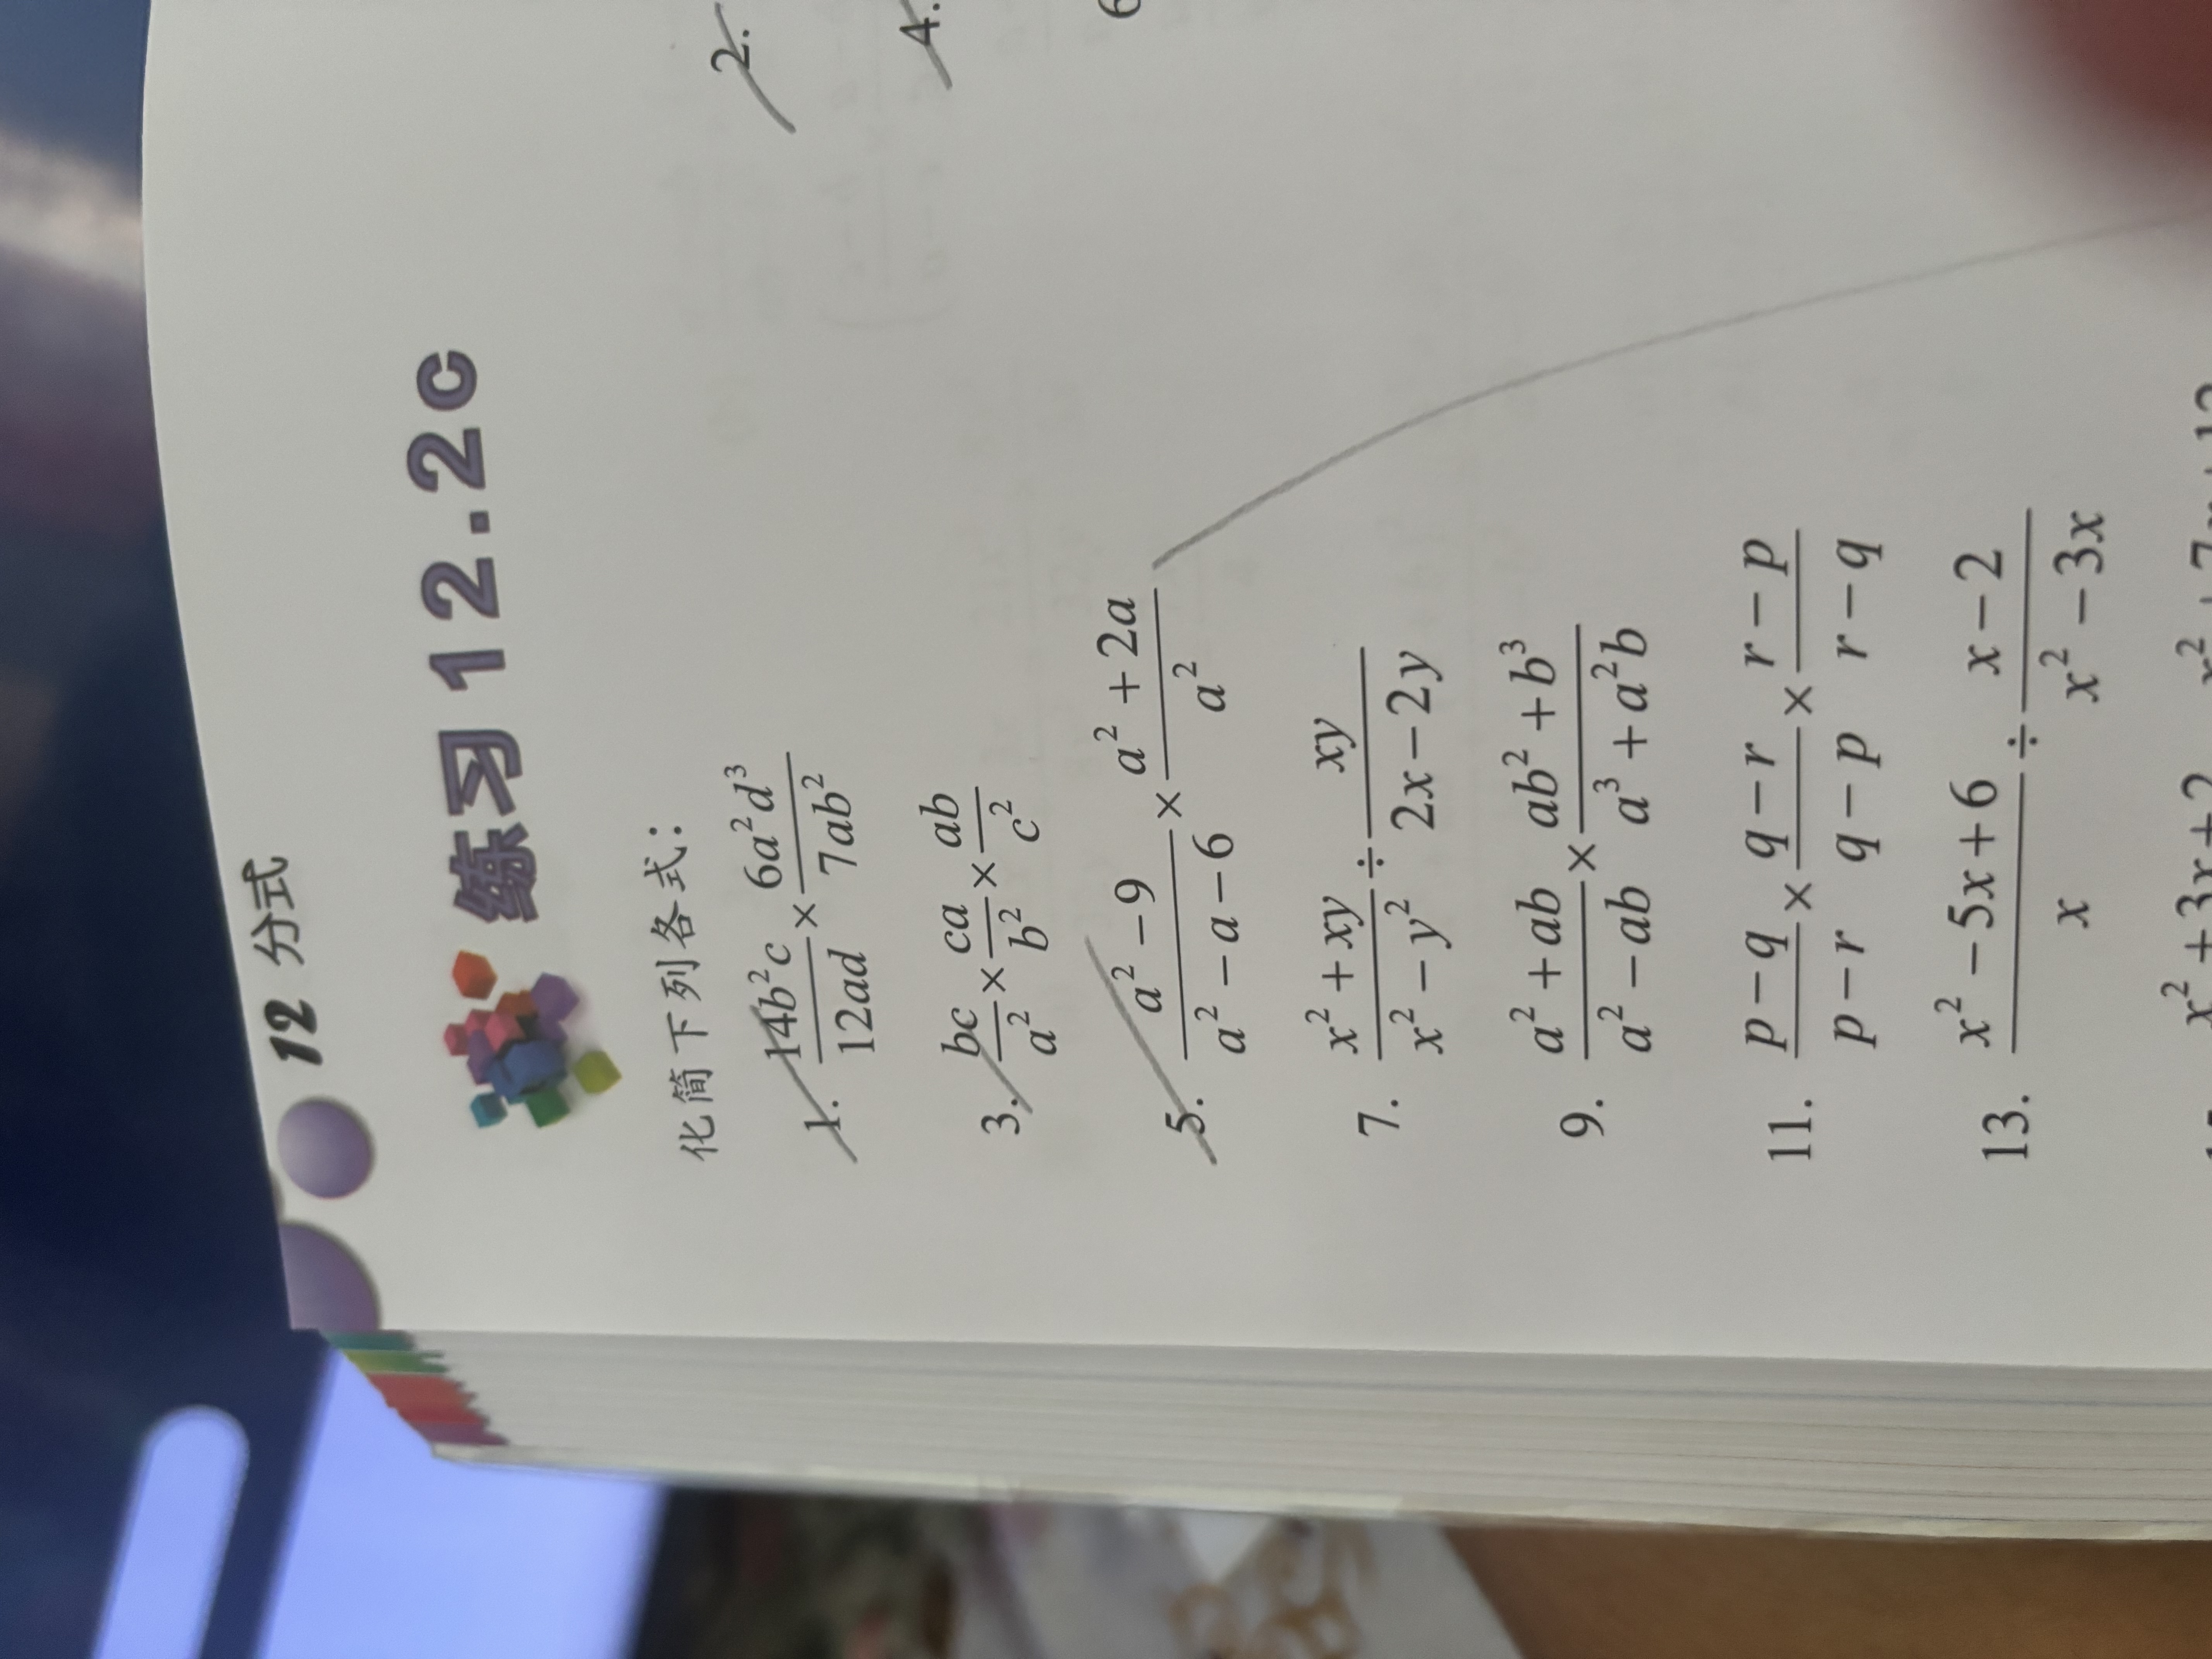 12 分式
练习 12.2c
化简下列各式：
1. \frac{14b^2c}{12ad} × \frac{6a^2d^3}{7ab^2}
2.
3. \frac{bc}{a^2} × \frac{ca}{b^2} × \frac{ab}{c^2}
4.
5. \frac{a^2-9}{a^2-a-6} × \frac{a^2+2a}{a^2}
6
7. \frac{x^2+xy}{x^2-y^2} ÷ \frac{xy}{2x-2y}
9. \frac{a^2+ab}{a^2-ab} × \frac{ab^2+b^3}{a^3+a^2b}
11. \frac{p-q}{p-r} × \frac{q-r}{q-p} × \frac{r-p}{r-q}
13. \frac{x^2-5x+6}{x} ÷ \frac{x-2}{x^2-3x}